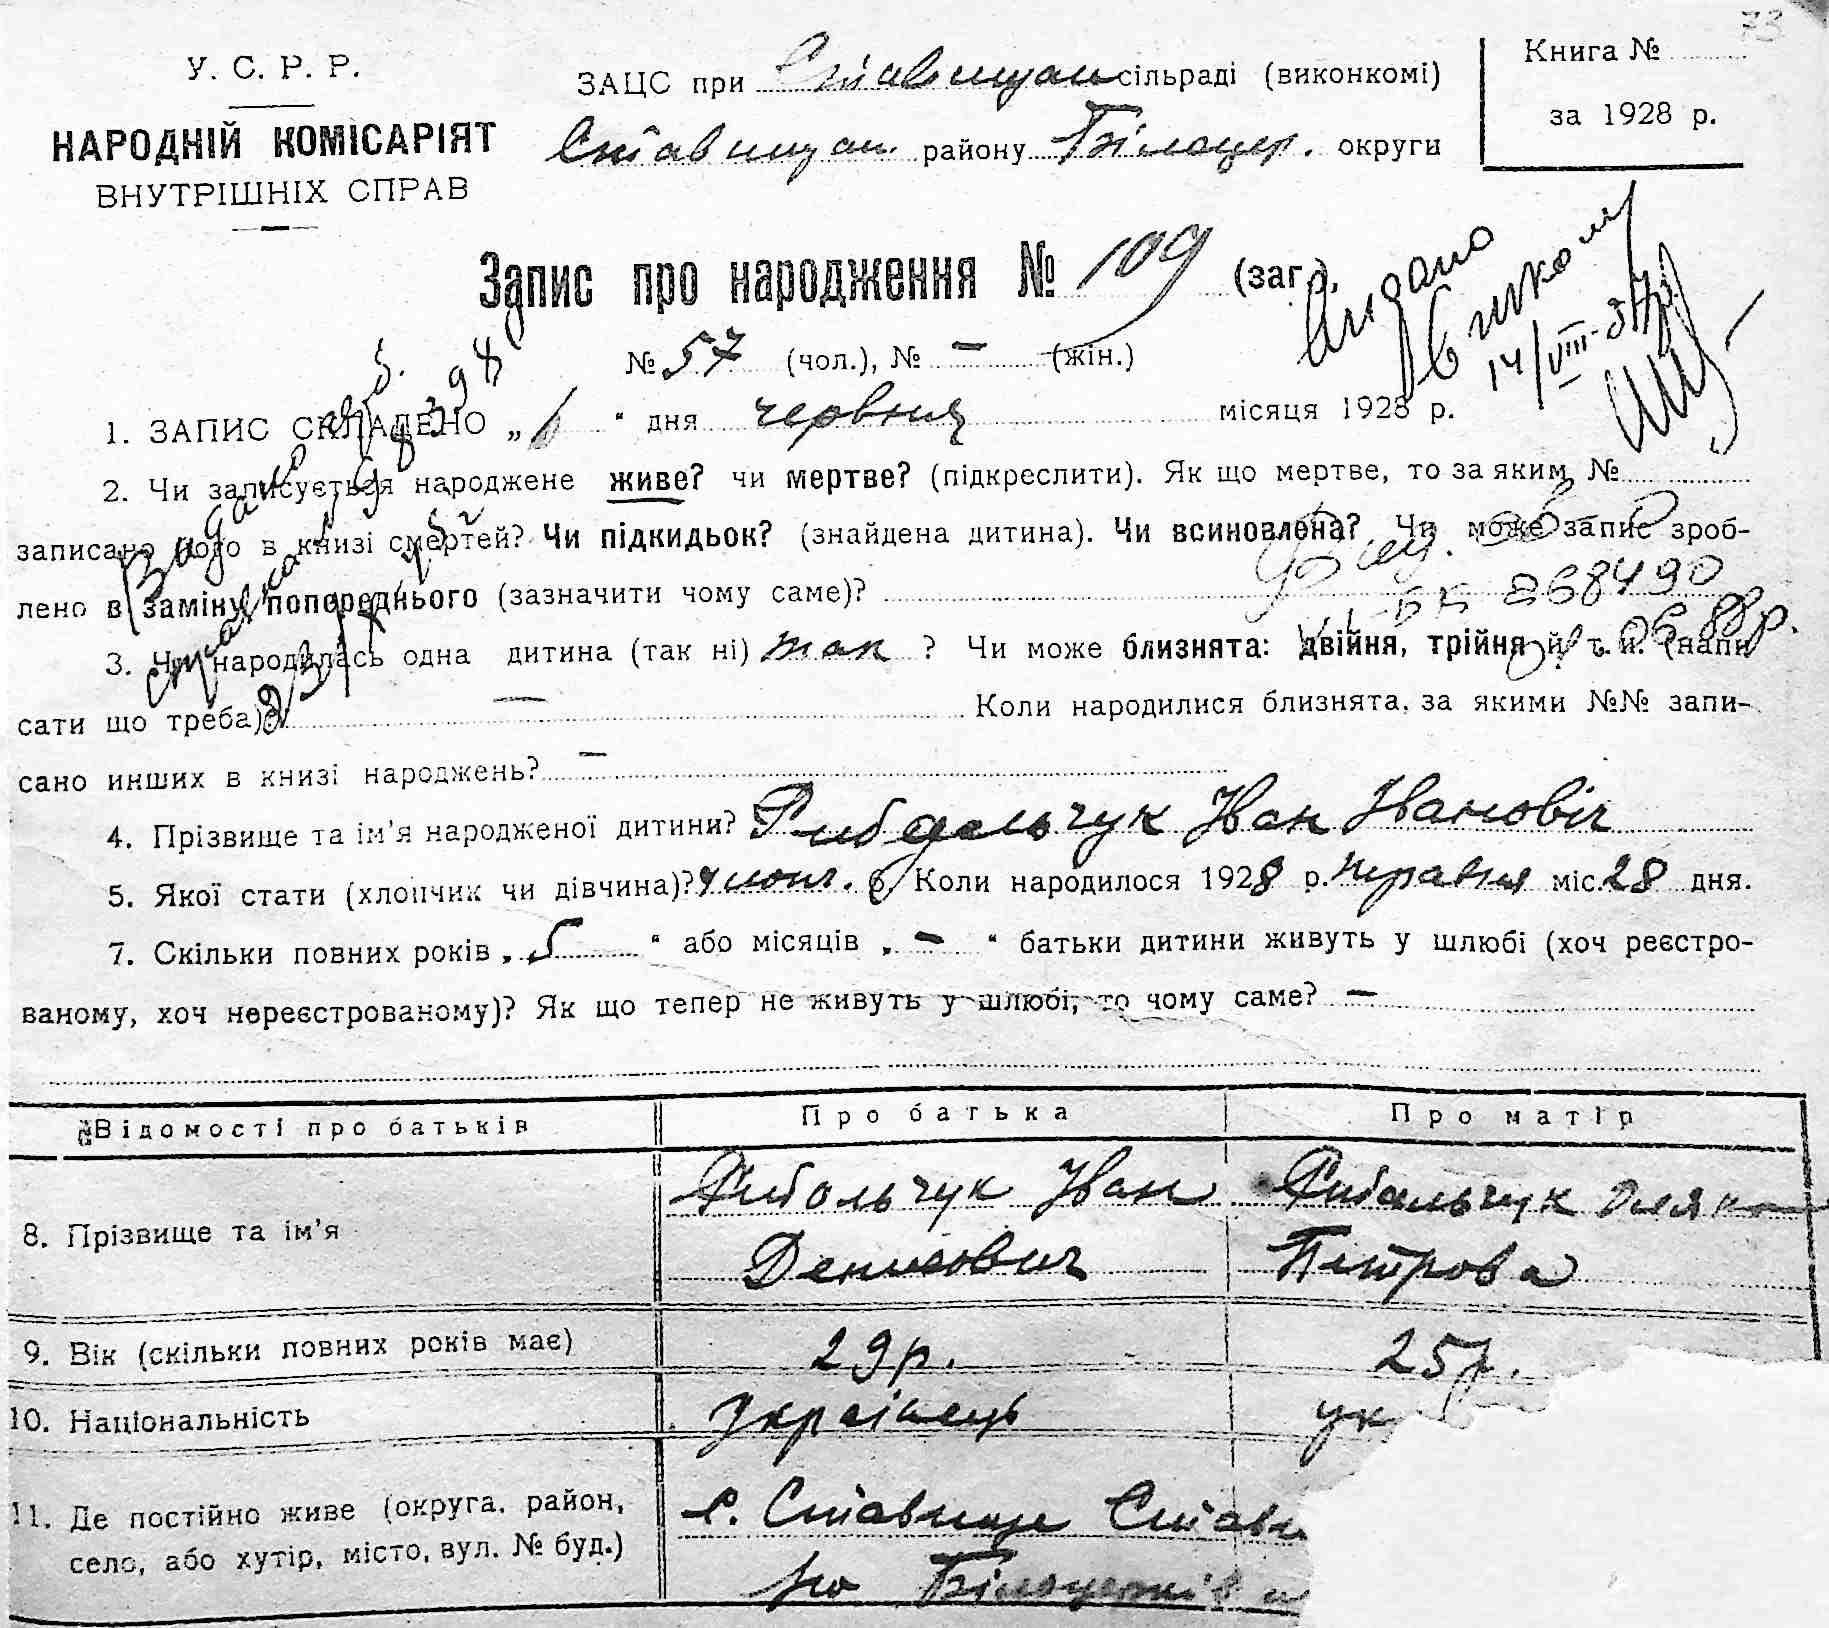 73
У. С. Р. Р.
НАРОДНІЙ КОМІСАРІЯТ
ВНУТРІШНІХ СПРАВ
ЗАЦС при Ставищан сільраді (виконкомі)
Ставищан. району Білоцер. округи
Книга №
за 1928 р.
Запис про народження № 109 (заг.),
№ 57 (чол.), № – (жін.)
Видано
14/VIII-37р.
1. ЗАПИС СКЛАДЕНО „1“ дня червня місяця 1928 р.
2. Чи записується народжене живе? чи мертве? (підкреслити). Як що мертве, то за яким №
записано його в книзі смертей? Чи підкидьок? (знайдена дитина). Чи всиновлена? Чи може запис зроб-
лено в заміну попереднього (зазначити чому саме)?
868490
3. Чи народилась одна дитина (так ні) так ? Чи може близнята: двійня, трійня й т. и. (напи
сати що треба) — Коли народилися близнята, за якими №№ запи-
сано инших в книзі народжень? –
4. Прізвище та ім'я народженої дитини? Рибальчук Іван Іванович
5. Якої стати (хлопчик чи дівчина)? 6. Коли народилося 1928 р. травня міс. 28 дня.
7. Скільки повних років „5“ або місяців „–“ батьки дитини живуть у шлюбі (хоч реєстро-
ваному, хоч нереєстрованому)? Як що тепер не живуть у шлюбі, то чому саме? –
Відомості про батьків Про батька Про матір
8. Прізвище та ім'я Рибальчук Іван Рибальчук
Денисович Петрова
9. Вік (скільки повних років має) 29р. 25р.
10. Національність Українець ук
11. Де постійно живе (округа, район, с. Ставище Стави
село, або хутір, місто, вул. № буд.) Білоцерків